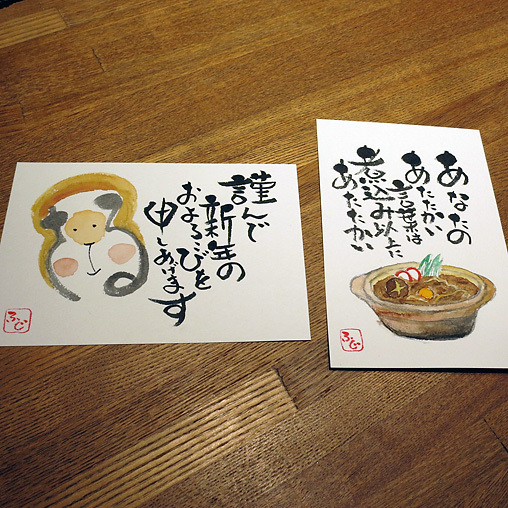 謹んで
新年の
およろこびを
申しあげます
ふじ
あなたの
あたたかい
言葉は
煮込み以上に
あたたかい
ふじ